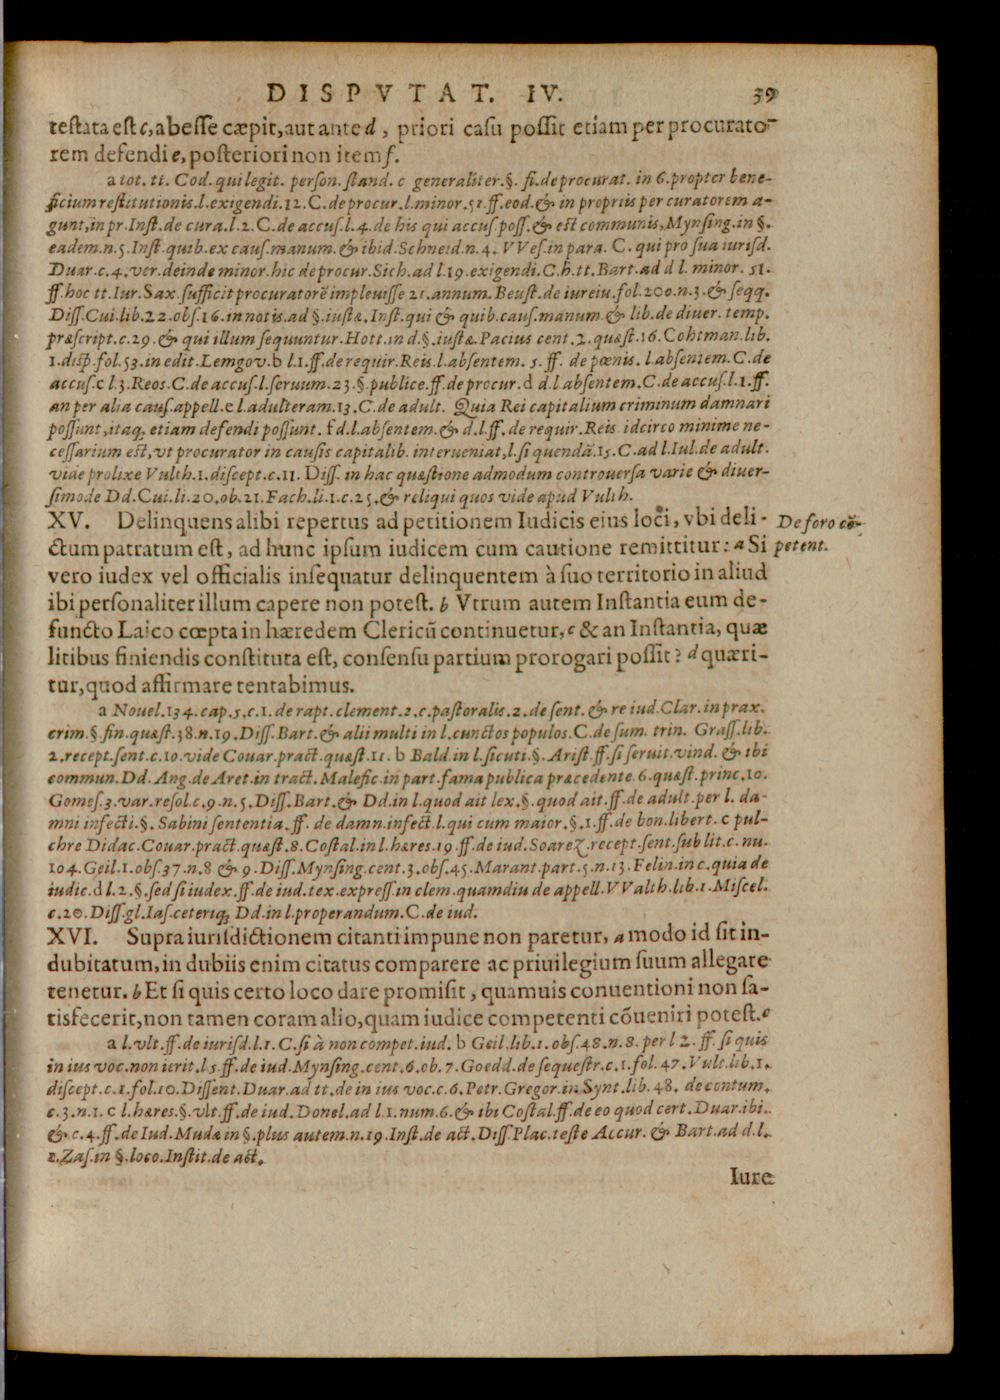 DISPVTAT. IV. 39
testata est c, abesse cæpit, aut ante d, priori casu possit etiam per procurato-
rem defendi e, posteriori non item f.
a tot. tt. Cod. qui legit. person. stand. c generaliter. §. fi. de procurat. in 6. propter bene-
ficium restitutionis. l. exigendi. 12. C. de procur. l. minor. 51. ff. eod. & in propriis per curatorem a-
gunt, in pr. Inst. de cura. l. 2. C. de accus. l. 4. de his qui accus. poss. & est communis, Mynsing. in §.
eadem. n. 5. Inst. quib. ex caus. manum. & ibid. Schneid. n. 4. VVes. in para. C. qui pro sua iurisd.
Duar. c. 4. ver. deinde minor. hic de procur. Sich. ad l. 19. exigendi. C. h. tt. Bart. ad d l. minor. 51.
ff. hoc tt. Iur. Sax. sufficit procuratorē impleuisse 21. annum. Beust. de iureiu. fol. 200. n. 3. & seqq.
Diss. Cui. lib. 22. obs. 16. in notis. ad §. iustæ. Inst. qui & quib. caus. manum. & lib. de diuer. temp.
præscript. c. 29. & qui illum sequuntur. Hott. in d. §. iustæ. Pacius cent. 2. quæst. 16. Cohtman. lib.
1. disp. fol. 53. in edit. Lemgov. b l. 1. ff. de requir. Reis. l. absentem. 5. ff. de pœnis. l. absentem. C. de
accus. c l. 3. Reos. C. de accus. l. seruum. 23. §. publice. ff. de procur. d d. l absentem. C. de accus. l. 1. ff.
an per alia caus. appell. e l. adulteram. 13. C. de adult. Quia Rei capitalium criminum damnari
possunt, itaq; etiam defendi possunt. f d. l. absentem. & d. l. ff. de requir. Reis. idcirco minime ne-
cessarium est, vt procurator in causis capitalib. interueniat, l. si quendā. 15. C. ad l. Iul. de adult.
vide prolixe Vulth. 1. discept. c. 11. Diss. in hac quæstione admodum controuersa varie & diuer-
simode Dd. Cui. li. 20. ob. 21. Fach. li. 1. c. 25. & reliqui quos vide apud Vulth.
XV. Delinquens alibi repertus ad petitionem Iudicis eius loci, vbi deli- De foro cō-
ctum patratum est, ad hunc ipsum iudicem cum cautione remittitur: a Si petent.
vero iudex vel officialis insequatur delinquentem à suo territorio in aliud
ibi personaliter illum capere non potest. b Vtrum autem Instantia eum de-
functo Laico cœpta in hæredem Clericū continuetur, c & an Instantia, quæ
litibus finiendis constituta est, consensu partium prorogari possit? d quæri-
tur, quod affirmare tentabimus.
a Nouel. 134. cap. 5. c. 1. de rapt. clement. 2. c. pastoralis. 2. de sent. & re iud. Clar. in prax.
crim. §. fin. quæst. 38. n. 19. Diss. Bart. & alii multi in l. cunctos populos. C. de sum. trin. Grass. lib.
2. recept. sent. c. 10. vide Couar. pract. quæst. 11. b Bald. in l. sicuti. §. Arist. ff. si seruit. vind. & ibi
commun. Dd. Ang. de Aret. in tract. Malefic. in part. fama publica præcedente. 6. quæst. princ. 10.
Gomes. 3. var. resol. c. 9. n. 5. Diss. Bart. & Dd. in l. quod ait lex. §. quod ait. ff. de adult. per l. da-
mni infecti. §. Sabini sententia. ff. de damn. infect. l. qui cum maior. §. 1. ff. de bon. libert. c pul-
chre Didac. Couar. pract. quæst. 8. Costal. in l. hæres. 19. ff. de iud. Soarez. recept. sent. sub lit. c. nu.
104. Geil. 1. obs. 37. n. 8 & 9. Diss. Mynsing. cent. 3. obs. 45. Marant. part. 5. n. 13. Felin. in c. quia de
iudic. d l. 2. §. sed si iudex. ff. de iud. tex. express. in clem. quamdiu de appell. VValth. lib. 1. Miscel.
c. 20. Diss. gl. Ias. ceteriq; Dd. in l. properandum. C. de iud.
XVI. Supra iurisdictionem citanti impune non paretur, a modo id sit in-
dubitatum, in dubiis enim citatus comparere ac priuilegium suum allegare
tenetur. b Et si quis certo loco dare promisit, quamuis conuentioni non sa-
tisfecerit, non tamen coram alio, quam iudice competenti cōueniri potest. c
a l. vlt. ff. de iurisd. l. 1. C. si à non compet. iud. b Geil. lib. 1. obs. 48. n. 8. per l 2. ff. si quis
in ius voc. non ierit. l 5. ff. de iud. Mynsing. cent. 6. ob. 7. Goedd. de sequestr. c. 1. fol. 47. Vult. lib. 1.
discept. c. 1. fol. 10. Dissent. Duar. ad tt. de in ius voc. c. 6. Petr. Gregor. in Synt. lib. 48. de contum.
c. 3. n. 1. c l. hæres. §. vlt. ff. de iud. Donel. ad l 1. num. 6. & ibi Costal. ff. de eo quod cert. Duar. ibi.
& c. 4. ff. de Iud. Mudæ in §. plus autem. n. 19. Inst. de act. Diss. Plac. teste Accur. & Bart. ad d. l.
1. Zas. in §. loco. Instit. de act.
Iure